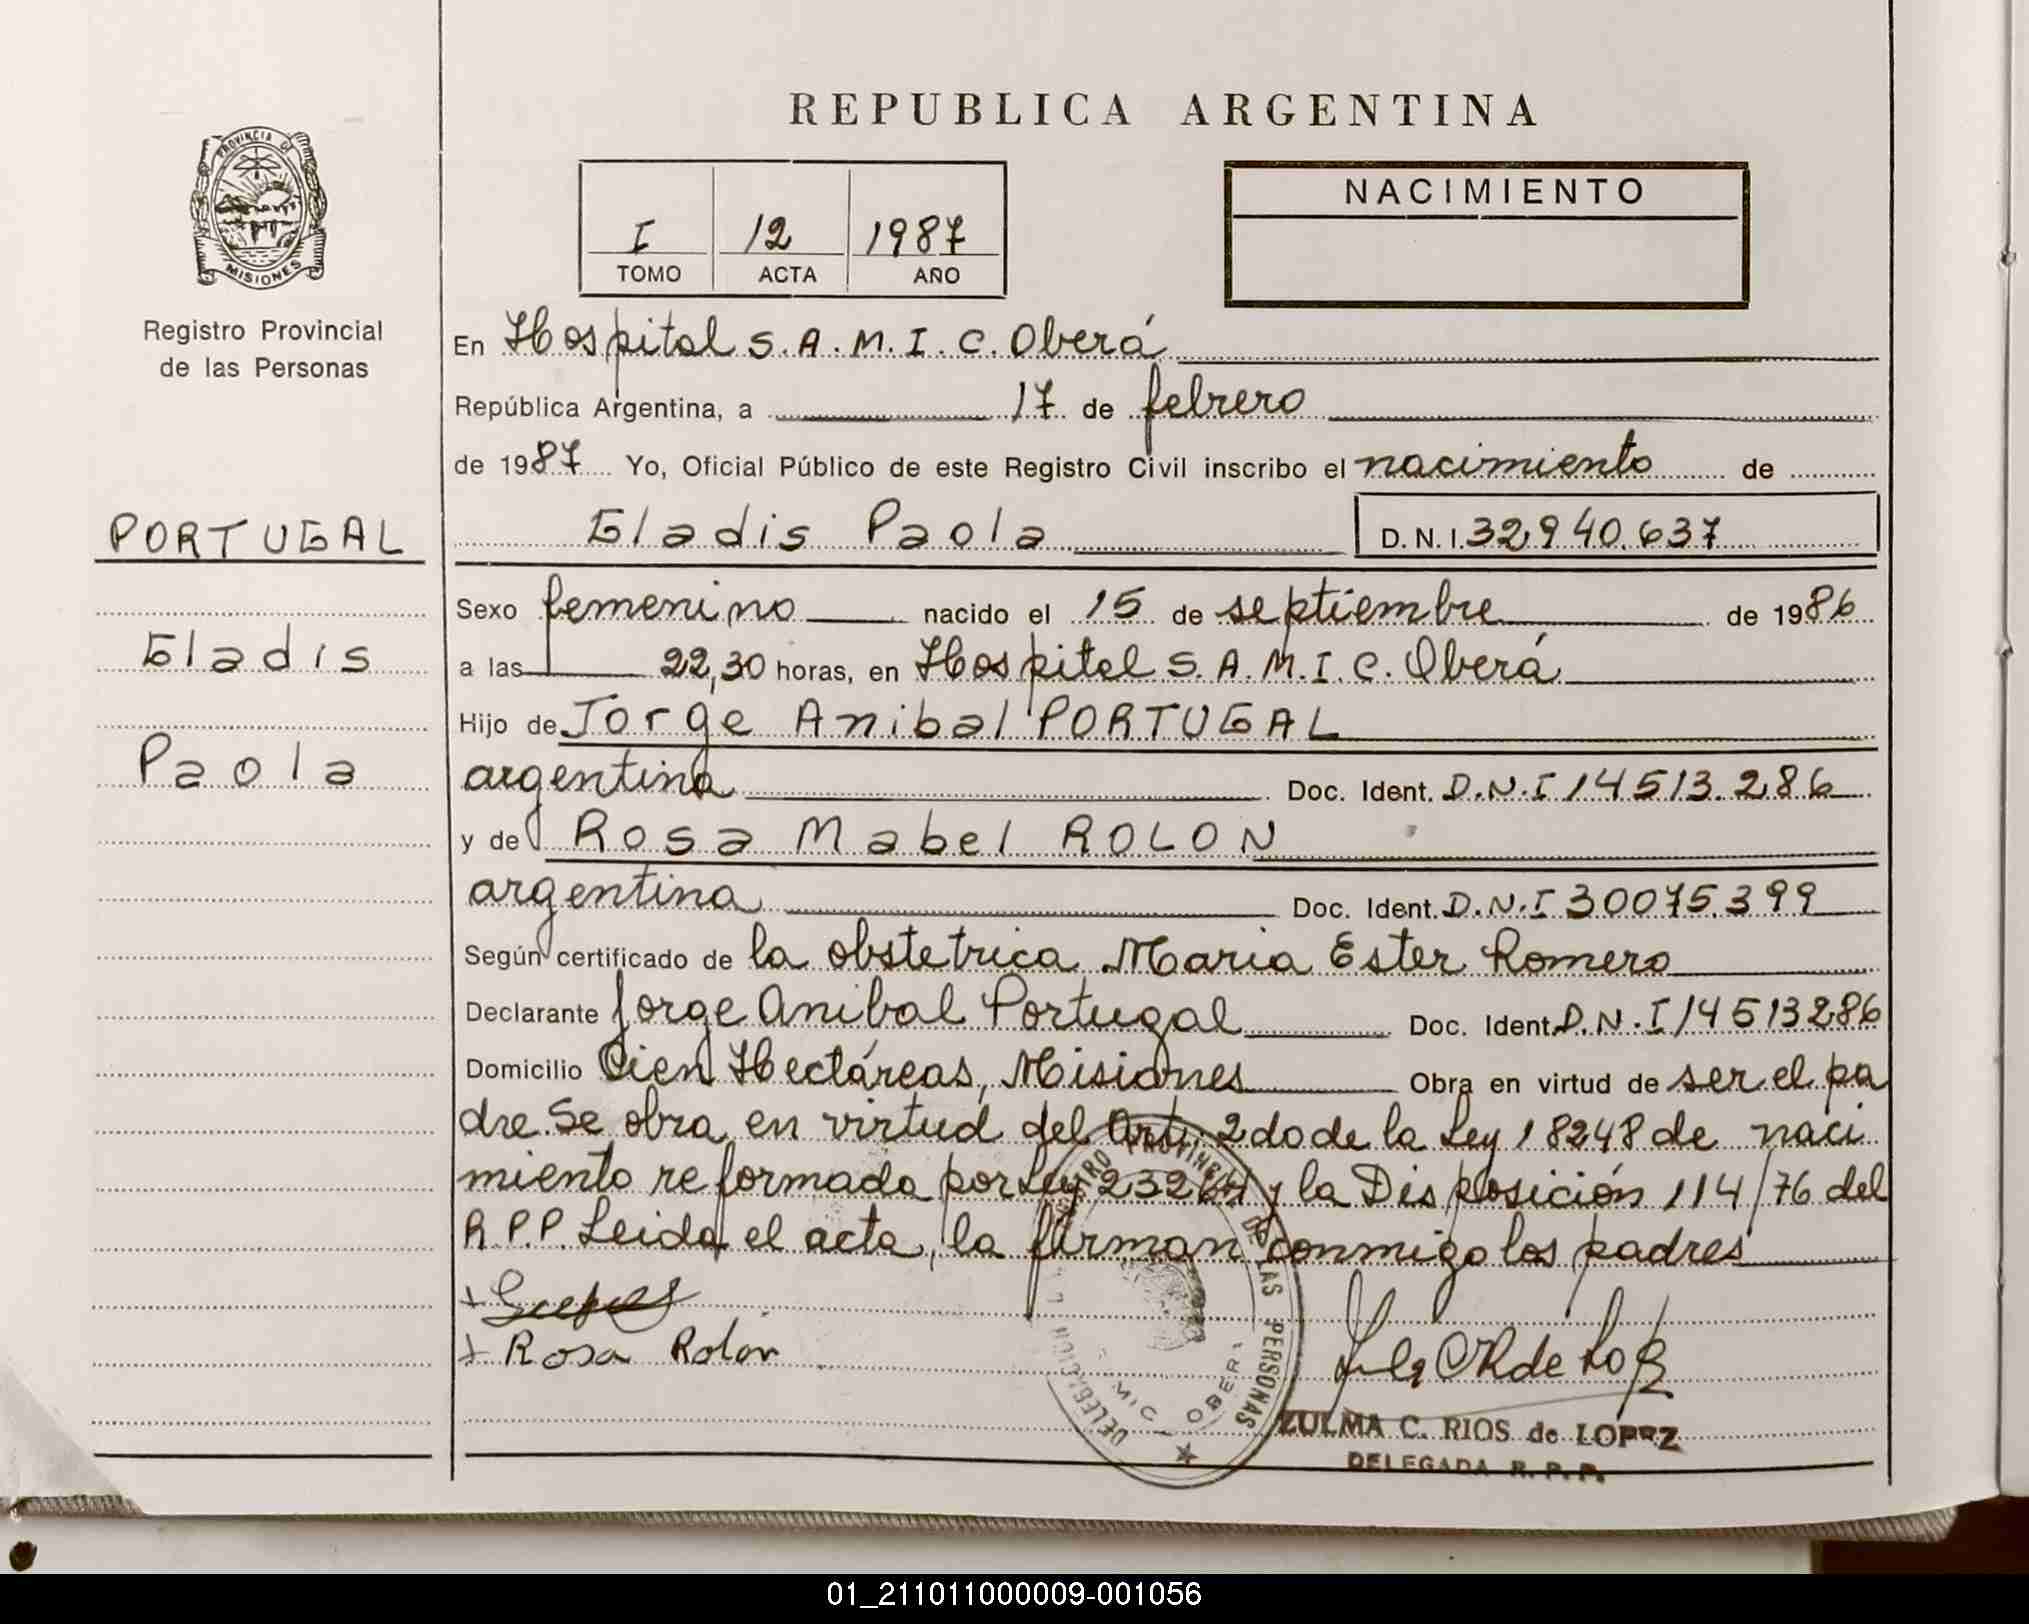 REPUBLICA ARGENTINA
PROVINCIA DE
MISIONES
Registro Provincial
de las Personas
I 12 1987
TOMO ACTA AÑO
NACIMIENTO
En Hospital S.A.M.I.C. Oberá
República Argentina, a 17 de febrero
de 1987 Yo, Oficial Público de este Registro Civil inscribo el nacimiento de
PORTUGAL
Gladis Paola D.N.I. 32940.637
Sexo femenino nacido el 15 de septiembre de 1986
Gladis
a las 22,30 horas, en Hospital S.A.M.I.C. Oberá
Hijo de Jorge Anibal PORTUGAL
Paola
argentina Doc. Ident. D.N.I 14513.286
y de Rosa Mabel ROLON
argentina Doc. Ident. D.N.I 30075.399
Según certificado de la obstetrica Maria Ester Romero
Declarante Jorge Anibal Portugal Doc. Ident. D.N.I 14513286
Domicilio Cien Hectáreas, Misiones Obra en virtud de ser el pa
dre. Se obra en virtud del Art. 2do de la Ley 18248 de naci
miento reformada por Ley 23264 y la Disposición 114/76 del
R.P.P. Leida el acta, la firman conmigo los padres
+ Rosa Rolón
PROVINCIAL DE LAS PERSONAS
DELEGACION
OBERA
ZULMA C. RIOS de LOPEZ
DELEGADA R. P. P.
01_211011000009-001056